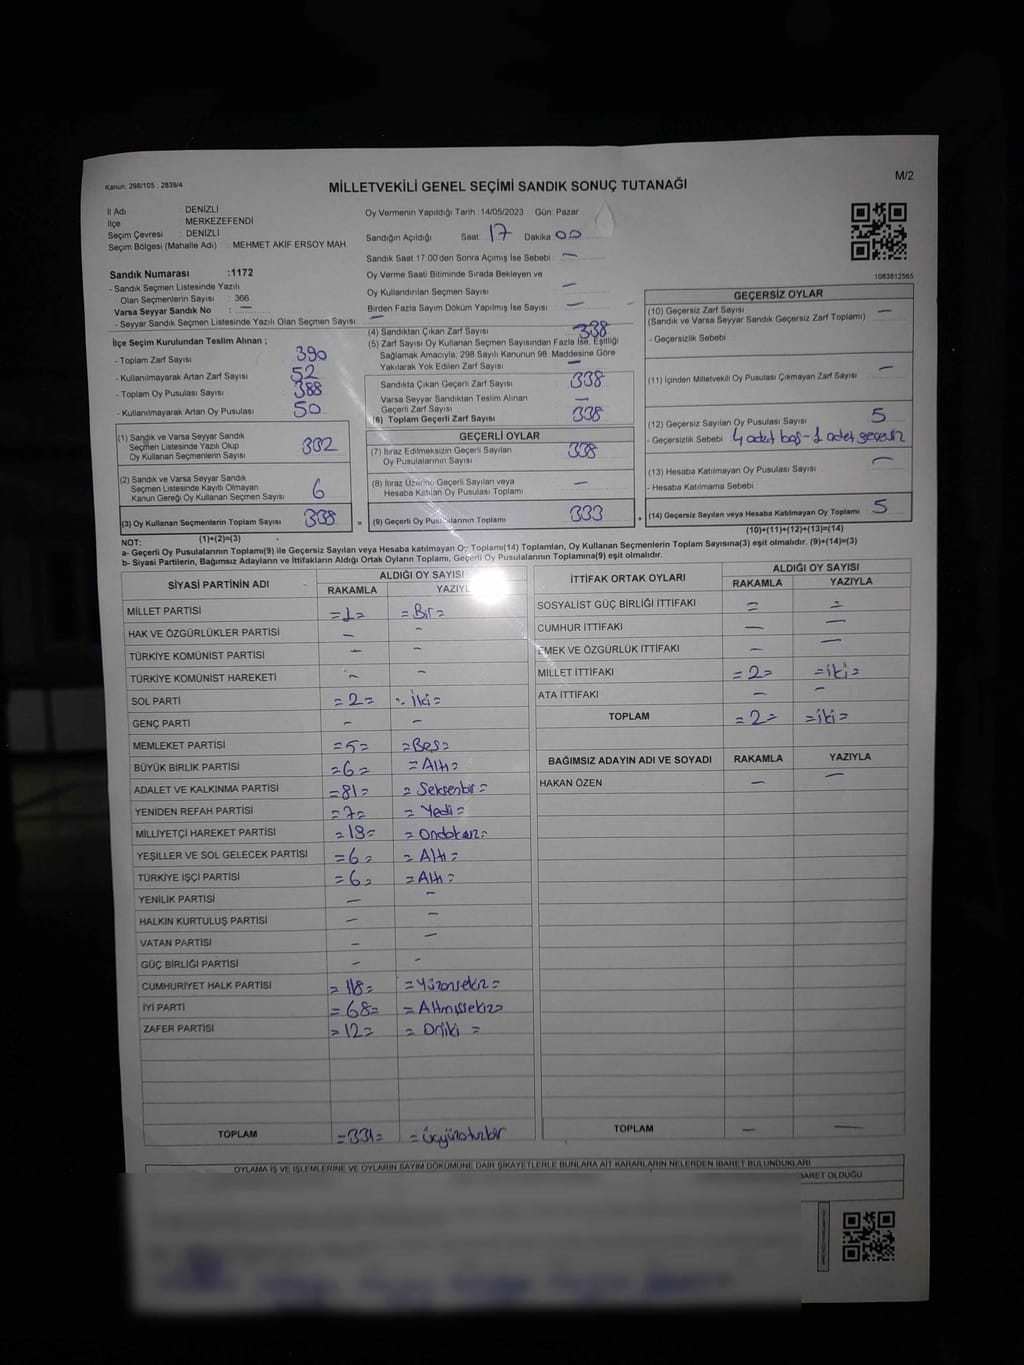 Kanun: 298/105 , 2839/4
M/2
MİLLETVEKİLİ GENEL SEÇİMİ SANDIK SONUÇ TUTANAĞI
İl Adı DENİZLİ
İlçe MERKEZEFENDİ
Seçim Çevresi : DENİZLİ
Seçim Bölgesi (Mahalle Adı) : MEHMET AKİF ERSOY MAH
Sandık Numarası :1172
- Sandık Seçmen Listesinde Yazılı
Olan Seçmenlerin Sayısı : 366
Varsa Seyyar Sandık No : —
- Seyyar Sandık Seçmen Listesinde Yazılı Olan Seçmen Sayısı : —
Oy Vermenin Yapıldığı Tarih : 14/05/2023 Gün: Pazar
Sandığın Açıldığı Saat: 17 Dakika 00
Sandık Saat 17:00'den Sonra Açımış İse Sebebi : —
Oy Verme Saati Bitiminde Sırada Bekleyen ve
Oy Kullandırılan Seçmen Sayısı —
Birden Fazla Sayım Döküm Yapılmış İse Sayısı : —
1083812565
İlçe Seçim Kurulundan Teslim Alınan ;
- Toplam Zarf Sayısı 390
- Kullanılmayarak Artan Zarf Sayısı 52
- Toplam Oy Pusulası Sayısı 388
- Kullanılmayarak Artan Oy Pusulası : 50
(1) Sandık ve Varsa Seyyar Sandık
Seçmen Listesinde Yazılı Olup
Oy Kullanan Seçmenlerin Sayısı 332
(2) Sandık ve Varsa Seyyar Sandık
Seçmen Listesinde Kayıtlı Olmayan
Kanun Gereği Oy Kullanan Seçmen Sayısı 6
(3) Oy Kullanan Seçmenlerin Toplam Sayısı 338
(1)+(2)=(3)
(4) Sandıktan Çıkan Zarf Sayısı 338
(5) Zarf Sayısı Oy Kullanan Seçmen Sayısından Fazla İse, Eşitliği
Sağlamak Amacıyla, 298 Sayılı Kanunun 98. Maddesine Göre
Yakılarak Yok Edilen Zarf Sayısı —
Sandıkta Çıkan Geçerli Zarf Sayısı 338
Varsa Seyyar Sandıktan Teslim Alınan
Geçerli Zarf Sayısı —
(6) Toplam Geçerli Zarf Sayısı 338
GEÇERLİ OYLAR
(7) İtiraz Edilmeksizin Geçerli Sayılan
Oy Pusulalarının Sayısı 338
(8) İtiraz Üzerine Geçerli Sayılan veya
Hesaba Katılan Oy Pusulası Toplamı —
= (9) Geçerli Oy Pusulalarının Toplamı 333 +
GEÇERSİZ OYLAR
(10) Geçersiz Zarf Sayısı —
(Sandık ve Varsa Seyyar Sandık Geçersiz Zarf Toplamı)
- Geçersizlik Sebebi :
(11) İçinden Milletvekili Oy Pusulası Çıkmayan Zarf Sayısı —
(12) Geçersiz Sayılan Oy Pusulası Sayısı 5
- Geçersizlik Sebebi : 4 adet boş - 1 adet
(13) Hesaba Katılmayan Oy Pusulası Sayısı —
- Hesaba Katılmama Sebebi :
(14) Geçersiz Sayılan veya Hesaba Katılmayan Oy Toplamı 5
(10)+(11)+(12)+(13)=(14)
NOT:
a- Geçerli Oy Pusulalarının Toplamı(9) ile Geçersiz Sayılan veya Hesaba katılmayan Oy Toplamı(14) Toplamları, Oy Kullanan Seçmenlerin Toplam Sayısına(3) eşit olmalıdır. (9)+(14)=(3)
b- Siyasi Partilerin, Bağımsız Adayların ve İttifakların Aldığı Ortak Oyların Toplamı, Geçerli Oy Pusulalarının Toplamına(9) eşit olmalıdır.
SİYASİ PARTİNİN ADI ALDIĞI OY SAYISI
RAKAMLA YAZIYLA
MİLLET PARTİSİ =1= =Bir=
HAK VE ÖZGÜRLÜKLER PARTİSİ — —
TÜRKİYE KOMÜNİST PARTİSİ — —
TÜRKİYE KOMÜNİST HAREKETİ — —
SOL PARTİ =2= = İki =
GENÇ PARTİ — —
MEMLEKET PARTİSİ =5= =Beş=
BÜYÜK BİRLİK PARTİSİ =6= = Altı=
ADALET VE KALKINMA PARTİSİ =81= = Seksenbir =
YENİDEN REFAH PARTİSİ =7= = Yedi =
MİLLİYETÇİ HAREKET PARTİSİ =19= = Ondokuz=
YEŞİLLER VE SOL GELECEK PARTİSİ =6= = Altı =
TÜRKİYE İŞÇİ PARTİSİ =6= =Altı =
YENİLİK PARTİSİ — —
HALKIN KURTULUŞ PARTİSİ — —
VATAN PARTİSİ — —
GÜÇ BİRLİĞİ PARTİSİ — —
CUMHURİYET HALK PARTİSİ =118= =Yüzonsekiz=
İYİ PARTİ =68= = Altmışsekiz=
ZAFER PARTİSİ =12= = Oniki =
TOPLAM =331= = üçyüzotuzbir
İTTİFAK ORTAK OYLARI ALDIĞI OY SAYISI
RAKAMLA YAZIYLA
SOSYALİST GÜÇ BİRLİĞİ İTTİFAKI = =
CUMHUR İTTİFAKI — —
EMEK VE ÖZGÜRLÜK İTTİFAKI — —
MİLLET İTTİFAKI =2= =iki=
ATA İTTİFAKI — —
TOPLAM =2= =iki=
BAĞIMSIZ ADAYIN ADI VE SOYADI RAKAMLA YAZIYLA
HAKAN ÖZEN — —
TOPLAM — —
OYLAMA İŞ VE İŞLEMLERİNE VE OYLARIN SAYIM DÖKÜMÜNE DAİR ŞİKAYETLERLE BUNLARA AİT KARARLARIN NELERDEN İBARET BULUNDUKLARI
İBARET OLDUĞU